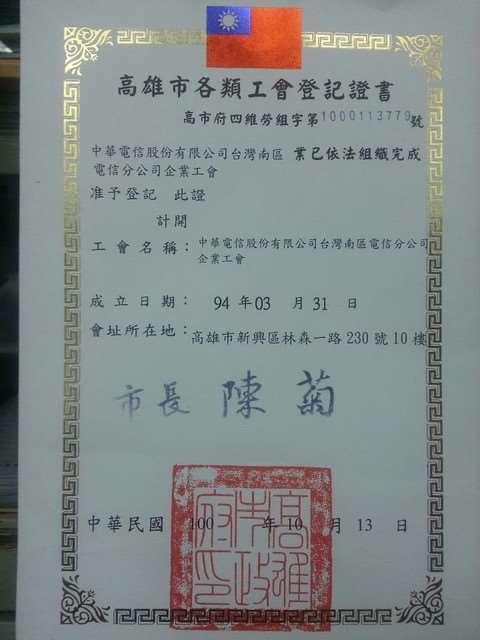 高雄市各類工會登記證書
高市府四維勞組字第1000113779號
中華電信股份有限公司台灣南區 業已依法組織完成
電信分公司企業工會
准予登記 此證
計開
工會名稱：中華電信股份有限公司台灣南區電信分公司
企業工會
成立日期： 94 年 03 月 31 日
會址所在地：高雄市新興區林森一路230號10樓
市長 陳菊
中華民國 100 年 10 月 13 日
高雄市政府印